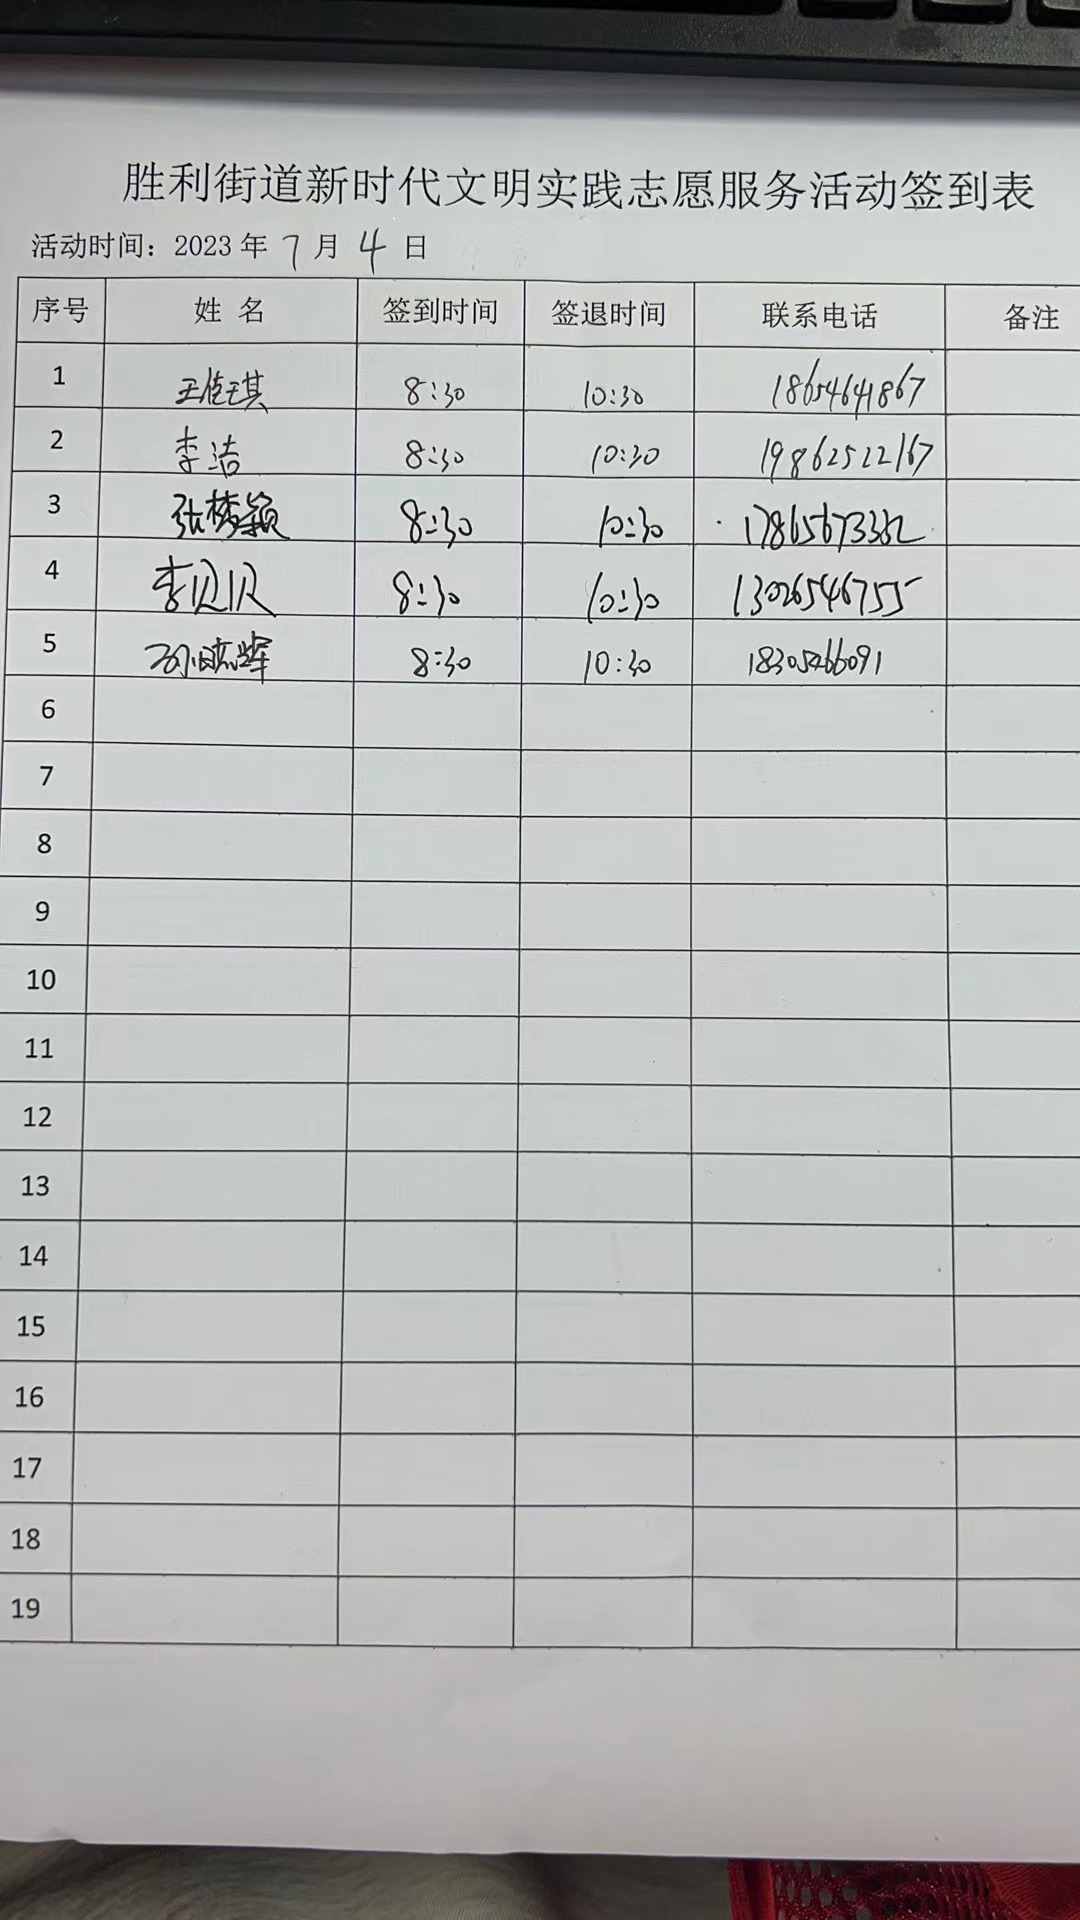 胜利街道新时代文明实践志愿服务活动签到表
活动时间：2023 年 7 月 4 日
序号 姓 名 签到时间 签退时间 联系电话 备注
1 王佳琪 8:30 10:30 18654641867
2 李洁 8:30 10:30 19862522167
3 张梦颖 8:30 10:30 17865673332
4 李贝贝 8:30 10:30 13026546755
5 8:30 10:30 18305466091
6
7
8
9
10
11
12
13
14
15
16
17
18
19